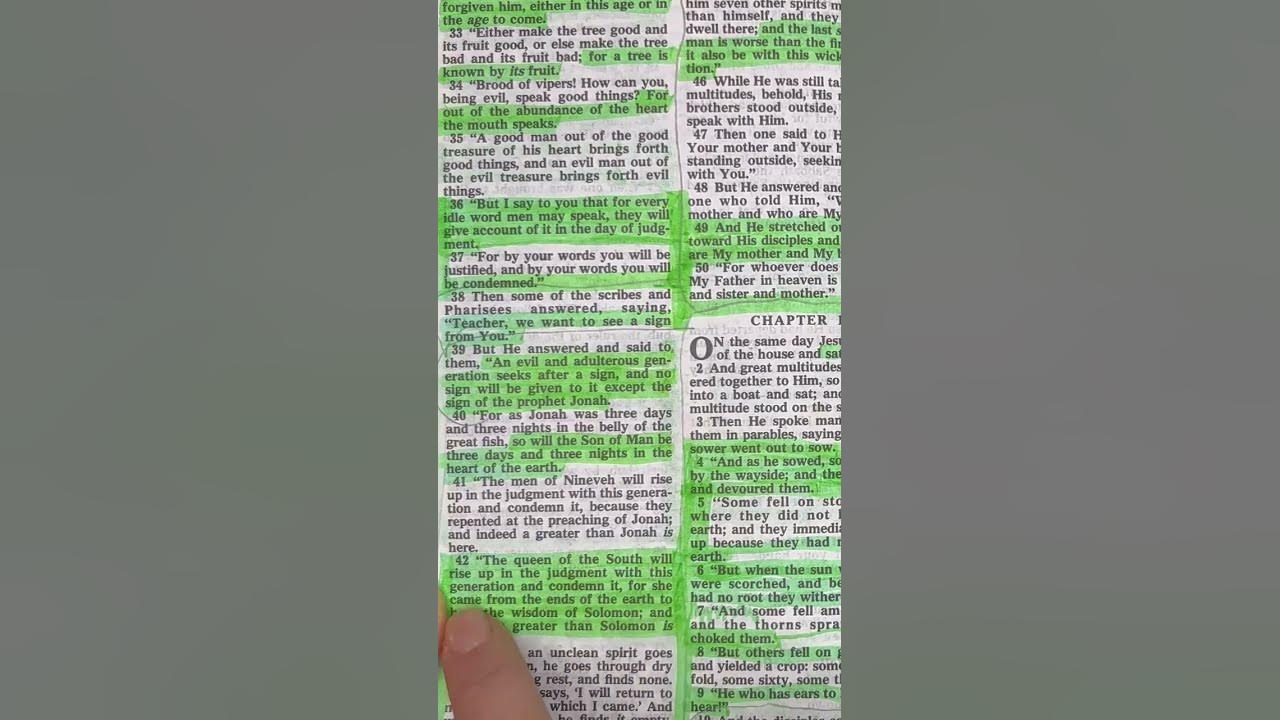 forgiven him, either in this age or in
the age to come.
33 “Either make the tree good and
its fruit good, or else make the tree
bad and its fruit bad; for a tree is
known by its fruit.
34 “Brood of vipers! How can you,
being evil, speak good things? For
out of the abundance of the heart
the mouth speaks.
35 “A good man out of the good
treasure of his heart brings forth
good things, and an evil man out of
the evil treasure brings forth evil
things.
36 “But I say to you that for every
idle word men may speak, they will
give account of it in the day of judg-
ment.
37 “For by your words you will be
justified, and by your words you will
be condemned.”
38 Then some of the scribes and
Pharisees answered, saying,
“Teacher, we want to see a sign
from You.”
39 But He answered and said to
them, “An evil and adulterous gen-
eration seeks after a sign, and no
sign will be given to it except the
sign of the prophet Jonah.
40 “For as Jonah was three days
and three nights in the belly of the
great fish, so will the Son of Man be
three days and three nights in the
heart of the earth.
41 “The men of Nineveh will rise
up in the judgment with this genera-
tion and condemn it, because they
repented at the preaching of Jonah;
and indeed a greater than Jonah is
here.
42 “The queen of the South will
rise up in the judgment with this
generation and condemn it, for she
came from the ends of the earth to
the wisdom of Solomon; and
greater than Solomon is
an unclean spirit goes
he goes through dry
rest, and finds none.
says, ‘I will return to
which I came.’ And
he finds it empty
him seven other spirits
than himself, and they
dwell there; and the last
man is worse than the
it also be with this
tion.”
46 While He was still
multitudes, behold, His
brothers stood outside,
speak with Him.
47 Then one said to
Your mother and Your
standing outside,
with You.”
48 But He answered
one who told Him,
mother and who are My
49 And He stretched
toward His disciples and
are My mother and My
50 “For whoever does
My Father in heaven is
and sister and mother.”
CHAPTER
ON the same day
of the house and
2 And great multitudes
ered together to Him, so
into a boat and sat;
multitude stood on the
3 Then He spoke
them in parables, saying
sower went out to sow.
4 “And as he sowed,
by the wayside; and the
and devoured them.
5 “Some fell on
where they did not
earth; and they
up because they had
earth.
6 “But when the sun
were scorched, and
had no root they
7 “And some fell
and the thorns
choked them.
8 “But others fell on
and yielded a crop:
fold, some sixty, some
9 “He who has ears to
hear!”
10 And the disciples